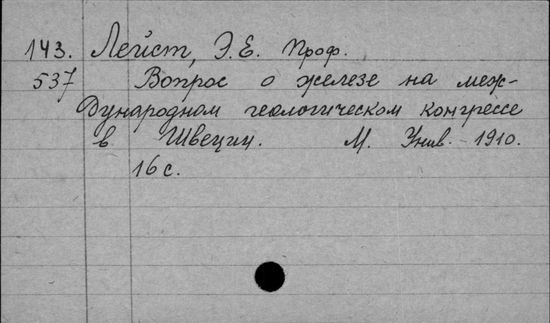 143. Лейст, Э.Е. Проф.
537 Вопрос о железе на меж-
дународном геологическом конгрессе
в Швеции. М. Унив. 1910.
16 с.